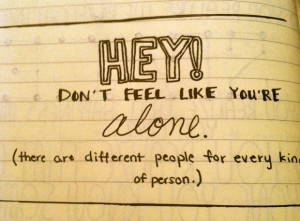 HEY!
DON'T FEEL LIKE YOU'RE
alone.
(there are different people for every kin
of person.)